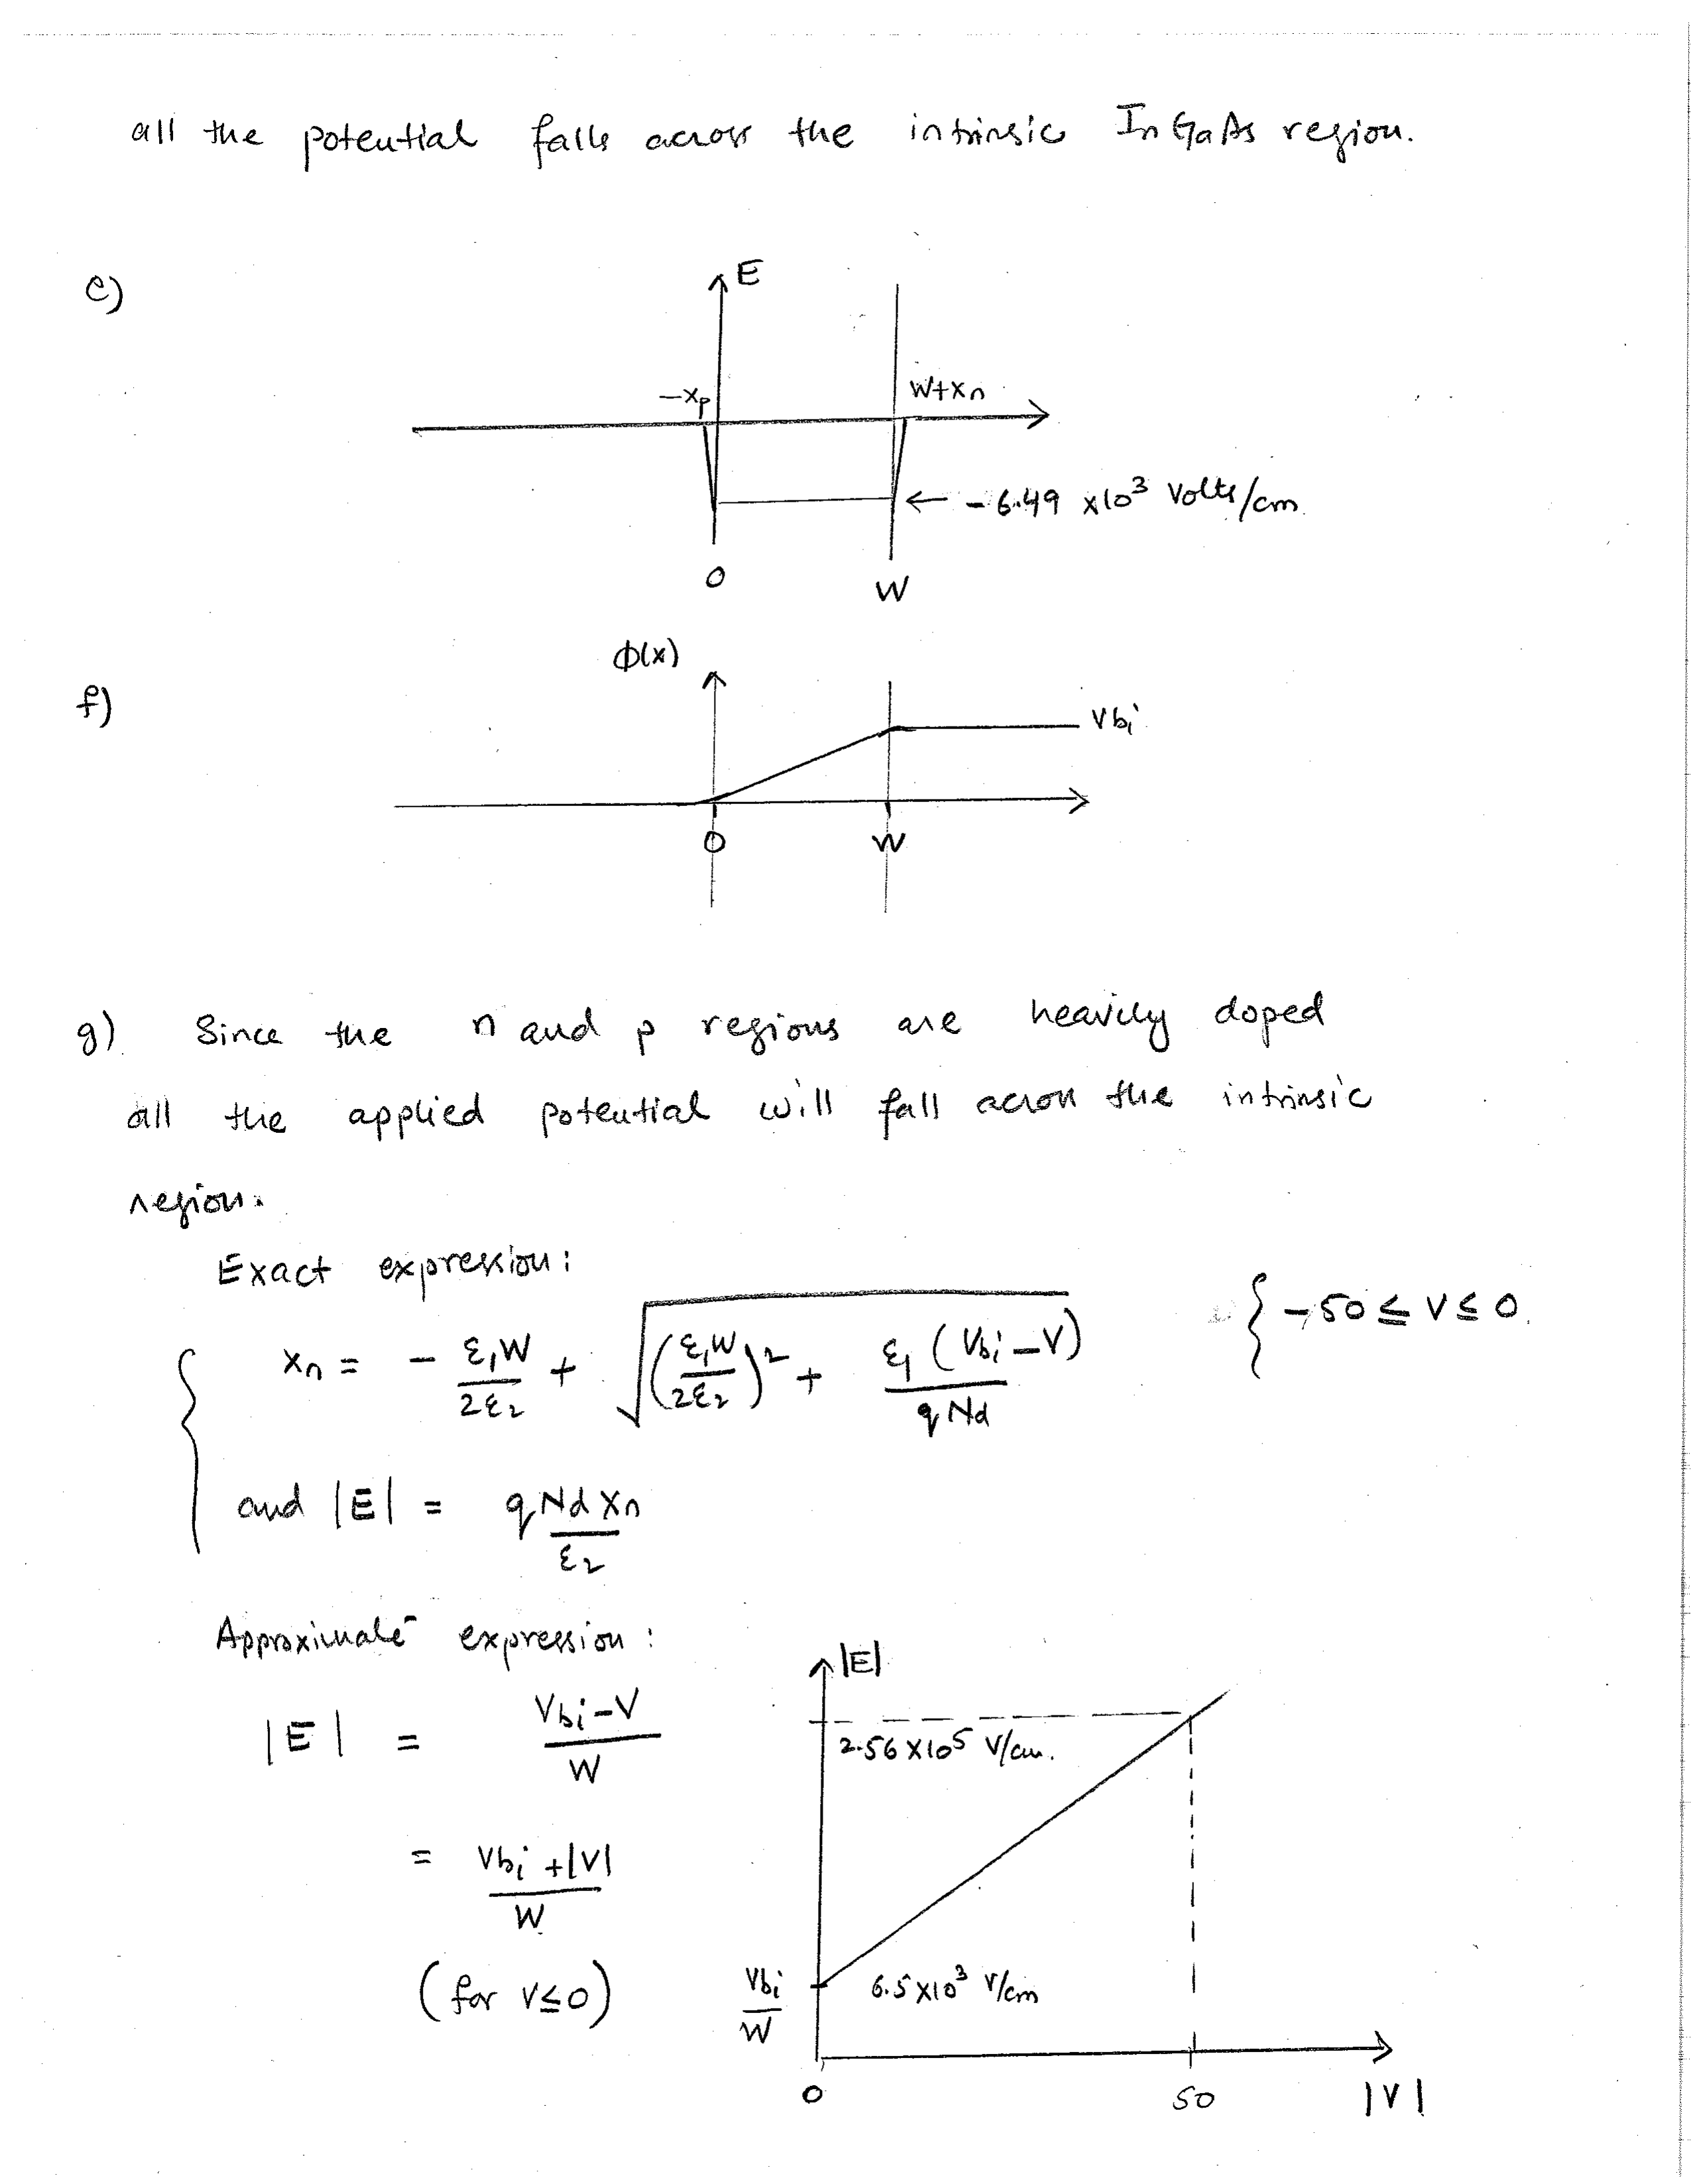 all the potential falls across the intrinsic InGaAs region.
e)
E
-xp
W+xn
← - 6.49 x10³ Volts/cm
0
W
f)
Φ(x)
Vbi
0
W
g) Since the n and p regions are heavily doped
all the applied potential will fall across the intrinsic
region.
Exact expression:
xn = - ε₁W/2ε₂ + √((ε₁W/2ε₂)² + ε₁(Vbi-V)/qNd) { -50 ≤ V ≤ 0.
and |E| = qNdxn/ε₂
Approximate expression:
|E| = Vbi-V/W
= Vbi+|V|/W
(for V≤0)
|E|
2.56 X10⁵ V/cm.
Vbi/W
6.5 X10³ V/cm
0
50
|V|